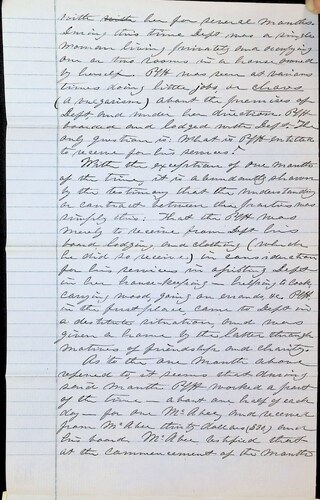 with her for several months.
During this time Deft was a single
woman living privately and occupying
one or two rooms in a house owned
by herself. Ptff was seen at various
times doing little jobs, or chores
(a vulgarism) about the premises of
Deft and under her direction. Ptff
boarded and lodged with Deft. The
only question is: What is Ptff entitled
to receive for his services?
With the exception of one month
of the time, it is abundantly shown
by the testimony that the understanding
or contract between the parties was
simply this: That the Ptff was
merely to receive from Deft his
board lodging and clothing (which
he did so receive) in consideration
for his services in assisting Deft
in her house-keeping — helping to cook,
carrying wood, going on errands, &c. Ptff,
in the first place, came to Deft in
a destitute situation, and was
given a home by the latter through
motives of friendship and charity.
As to the one month above
refered to it seems that during
said month Ptff worked a part
of the time — about one half of each
day — for one McAbee, and received
from McAbee thirty dollars ($30.) and
his board. McAbee testified that
at the commencement of the month